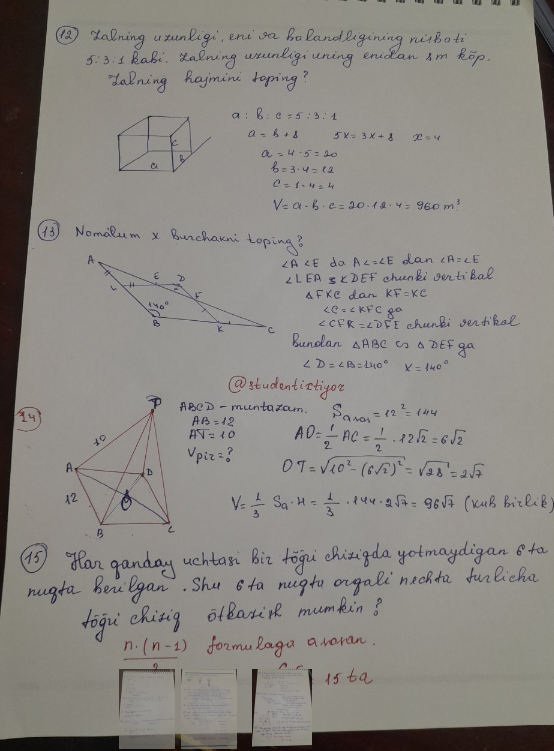 12 Zalning uzunligi, eni va balandligining nisbati
5:3:1 kabi. Zalning uzunligi uning enidan 8m köp.
Zalning hajmini toping?
a : b : c = 5 : 3 : 1
a = b + 8 5x = 3x + 8 x = 4
a = 4 · 5 = 20
b = 3 · 4 = 12
c = 1 · 4 = 4
V = a · b · c = 20 · 12 · 4 = 960 m³
a b c
13 Nomálum x burchakni toping?
A L E D F B K C 140° x
∠A ∠E da AL = LE dan ∠A = ∠E
∠LEA ∠DEF chunki vertikal
△FKC dan KF = KC
∠C = ∠KFC ga
∠CFK = ∠DFE chunki vertikal
bundan △ABC ∽ △DEF ga
∠D = ∠B = 140° x = 140°
@studentixtiyor
14
T A B C D O 10 12
ABCD - muntazam.
AB = 12
AT = 10
Vpir = ?
Sasos = 12² = 144
AO = 1/2 AC = 1/2 · 12√2 = 6√2
OT = √10² - (6√2)² = √28 = 2√7
V = 1/3 Sa · H = 1/3 · 144 · 2√7 = 96√7 (kub birlik)
15 Har qanday uchtasi bir töğri chiziqda yotmaydigan 6 ta
nuqta berilgan. Shu 6 ta nuqta orqali nechta turlicha
töğri chiziq ötkazish mumkin?
n · (n-1) formulaga asosan.
15 ta